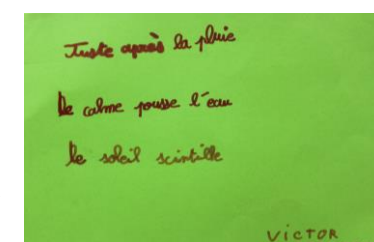 Juste après la pluie
le calme pousse l'eau
le soleil scintille
VICTOR